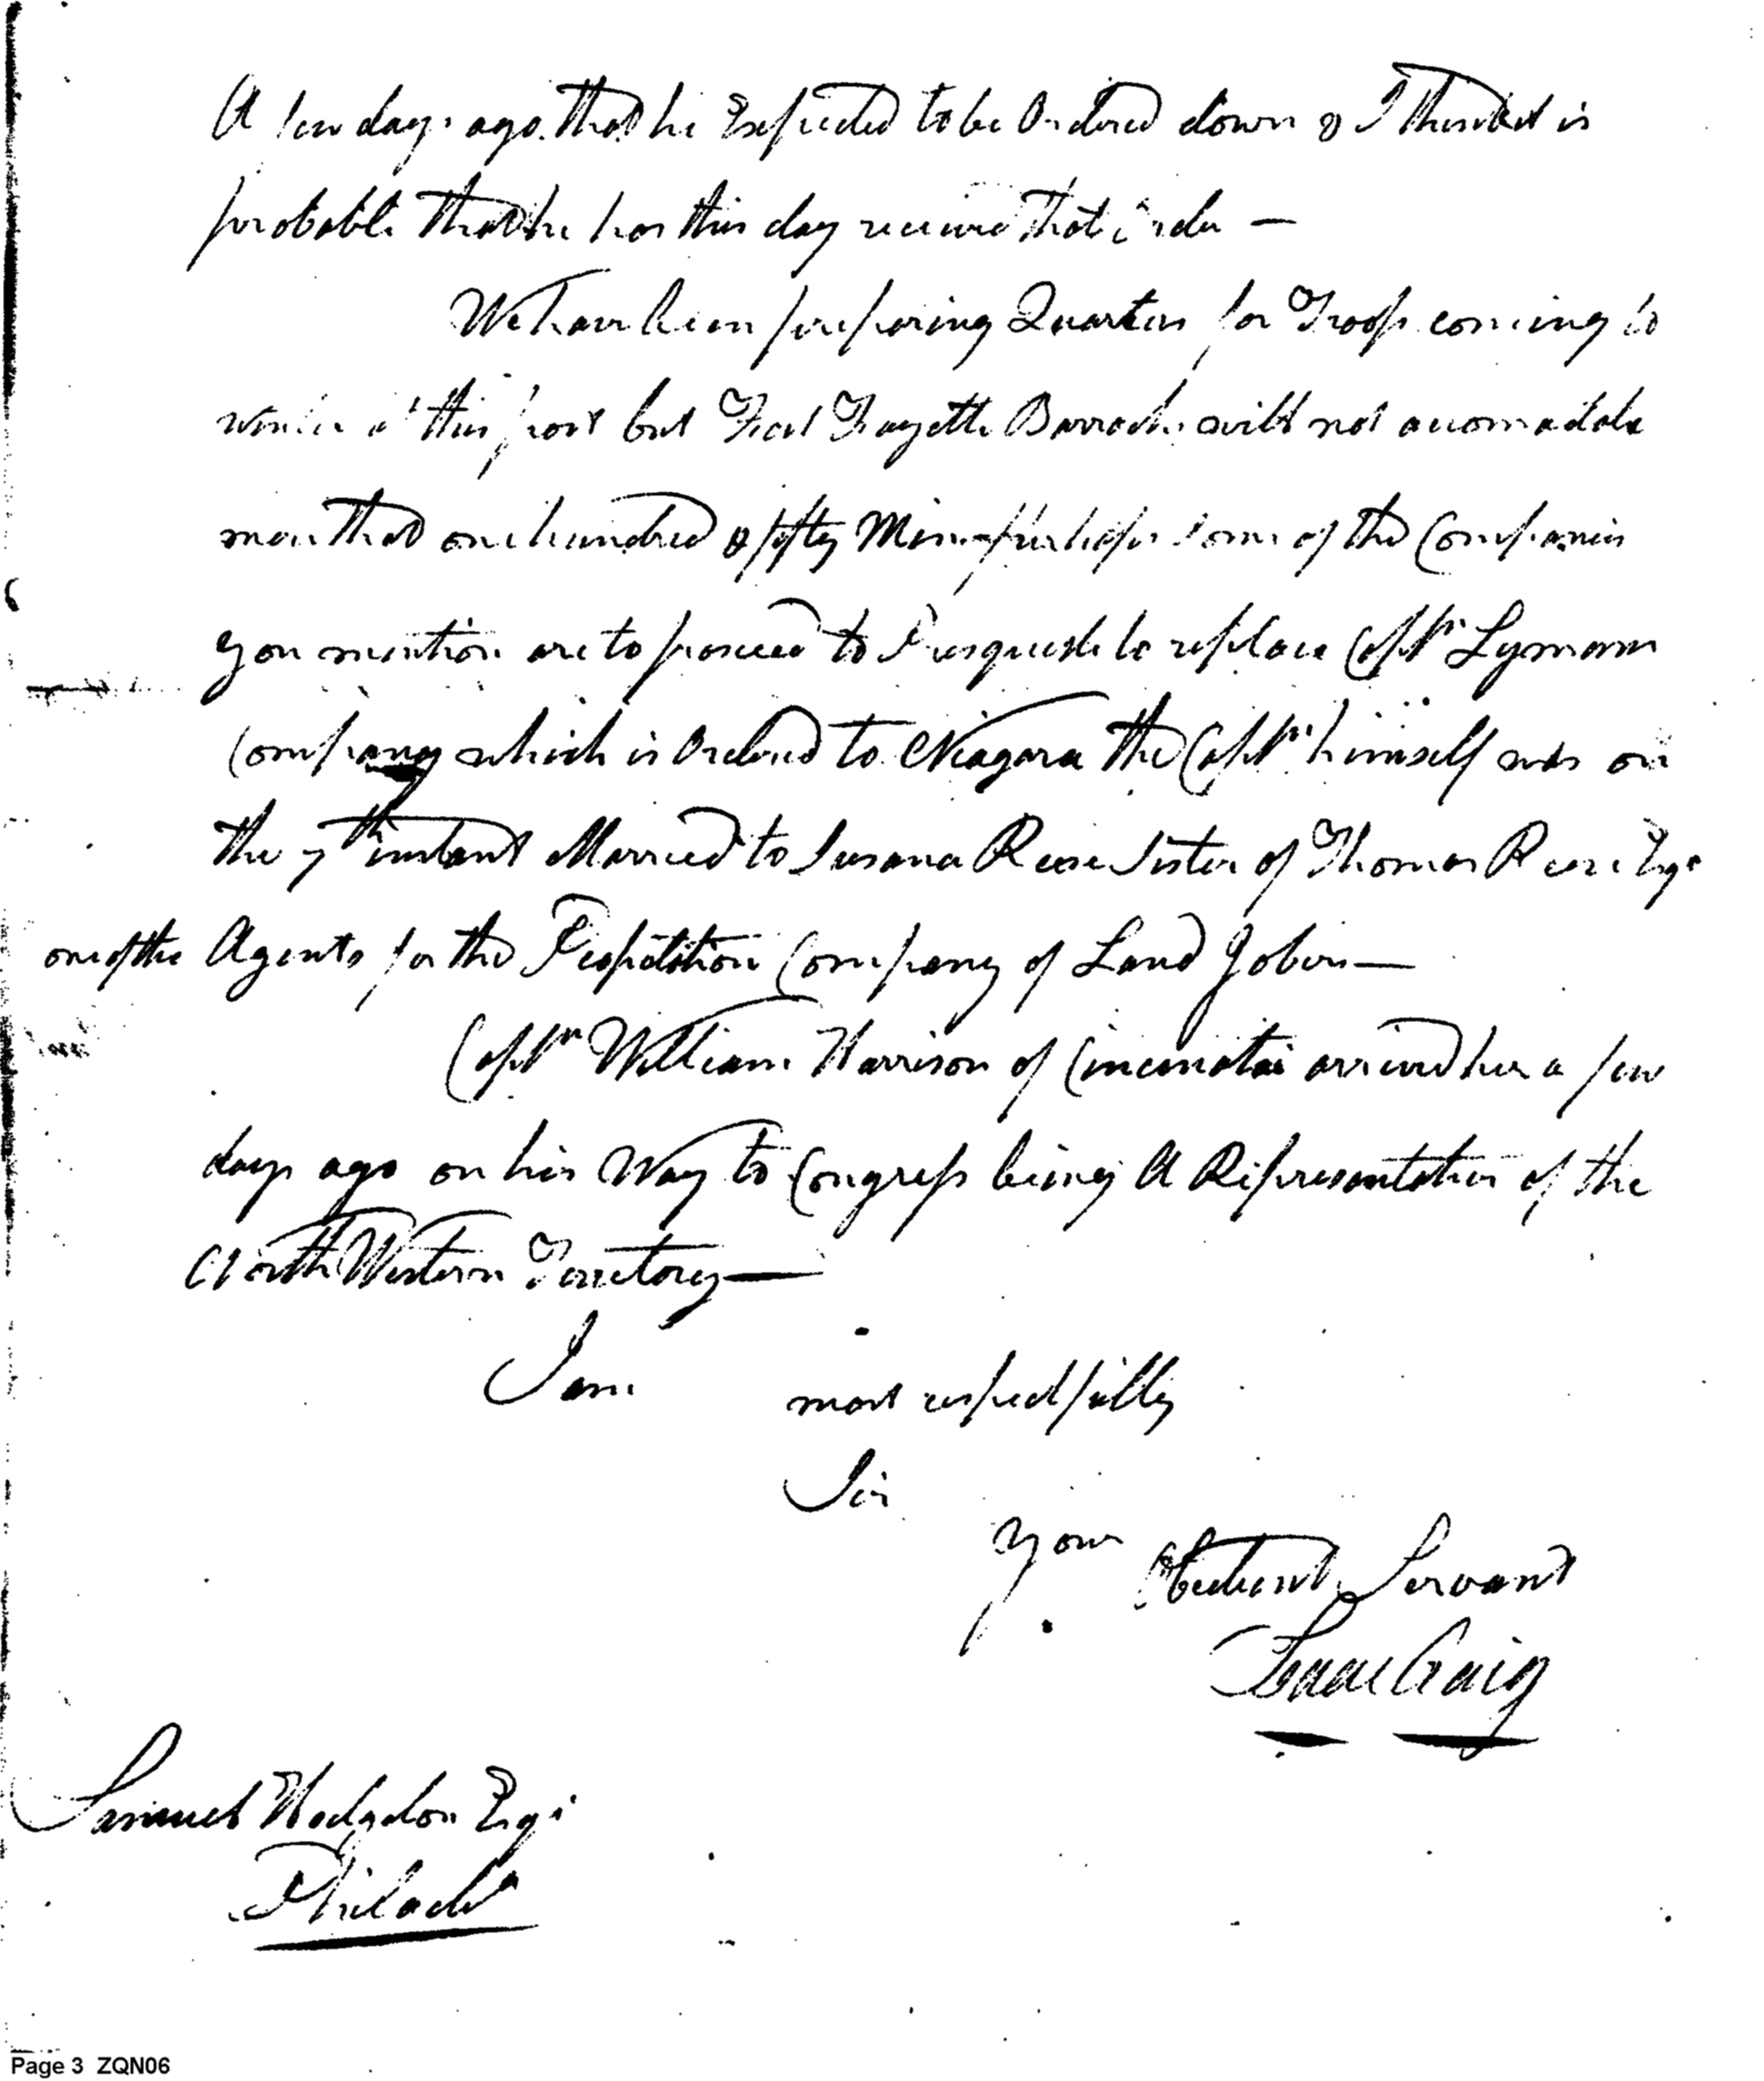 A few days ago that he Expected to be Ordered down & I think it is
probable that he has this day received that order —
We have been preparing Quarters for Troops coming to
winter at this post but Fort Fayette Barracks will not accomodate
more that one hundred & fifty Men perhaps some of the Companies
you mention are to proceed to Presquile to replace Capt.n Lymans
Company which is Ordered to Niagara the Capt.n himself was on
the 7th instant Married to Susana Reese Sister of Thomas Reese Esq.r
one of the Agents for the Population Company of Land Jobers —
Capt.n William Harrison of Cincinatai arrived here a few
days ago on his Way to Congress being A Representative of the
North Western Territory —
I am most respectfully
Sir
Your Obedient Servant
Isaac Craig
Samuel Hodgdon Esq.r
Philad.a
Page 3 ZQN06